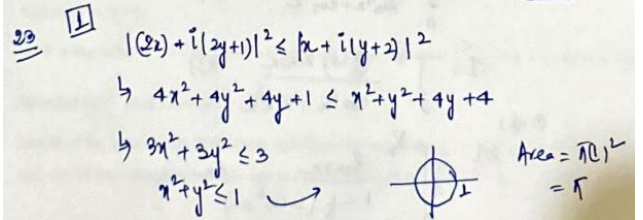 23 1
|(2x) + i(2y+1)|² ≤ |x + i(y+2)|²
↳ 4x² + 4y² + 4y + 1 ≤ x² + y² + 4y + 4
↳ 3x² + 3y² ≤ 3
x² + y² ≤ 1
1
Area = π(1)²
= π